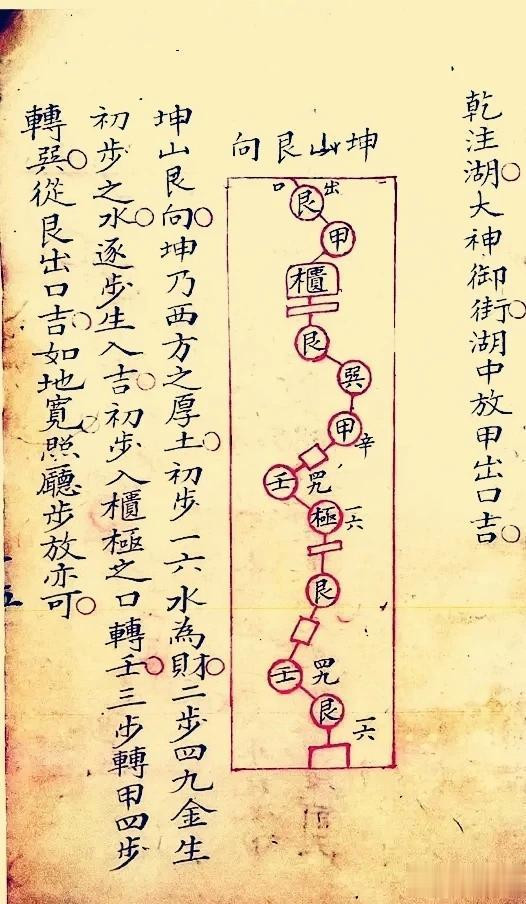 乾注湖○大神御街○湖中放甲出口吉○
坤山艮向
出口
艮
甲
櫃
艮
巽
甲
辛
壬
四九
極
一六
艮
壬
四九
艮
一六
坤山艮向○坤乃西方之厚土○初步一六水為財○二步四九金生
初步之水○逐步生入吉○初步入櫃極之口轉壬○三步轉甲四步
轉巽○從艮出口吉○如地寬○照廳步放亦可○